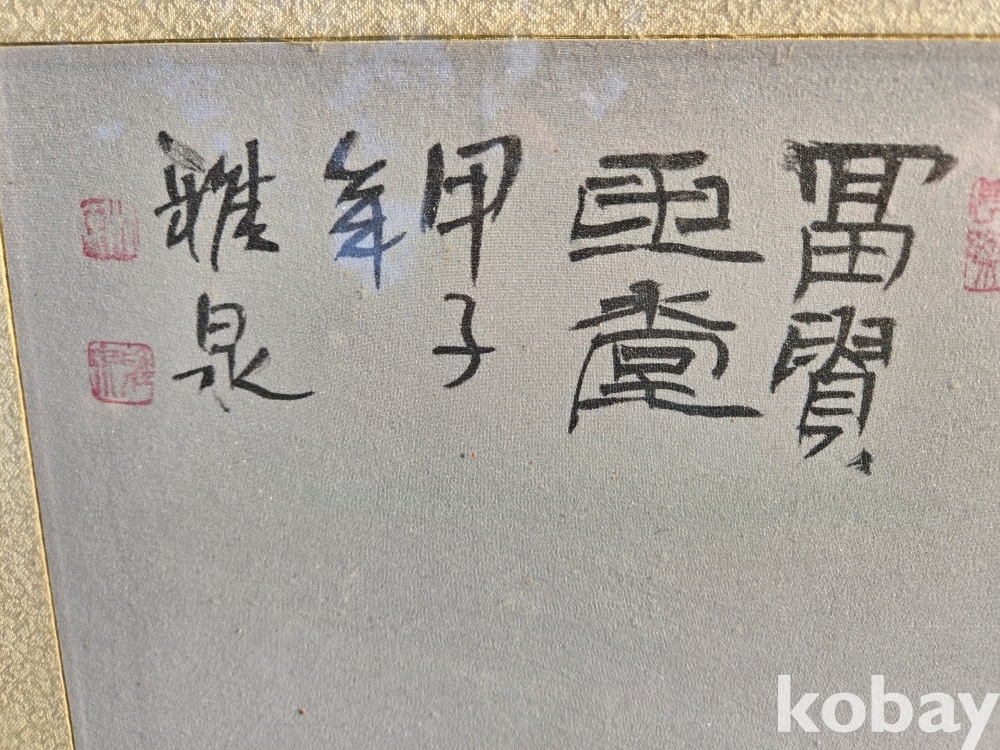 富貴
玉堂
甲子
年
雅泉
kobay